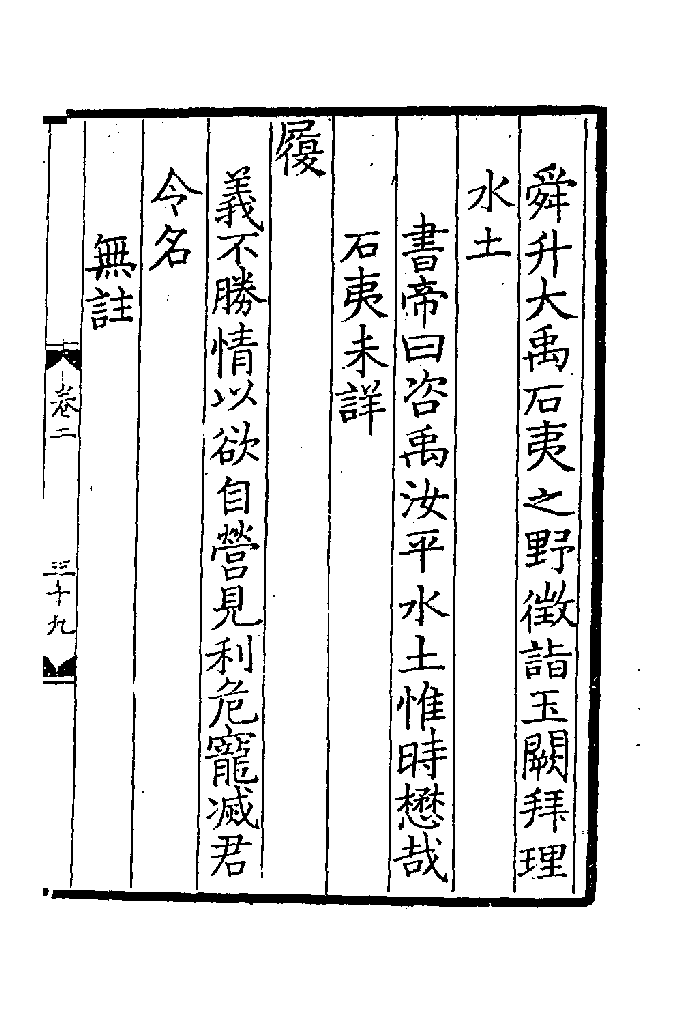 舜升大禹石夷之野徵詣玉闕拜理
水土
書帝曰咨禹汝平水土惟時懋哉
石夷未詳
履
義不勝情以欲自營見利危寵滅君
令名
無註
卷二
三十九